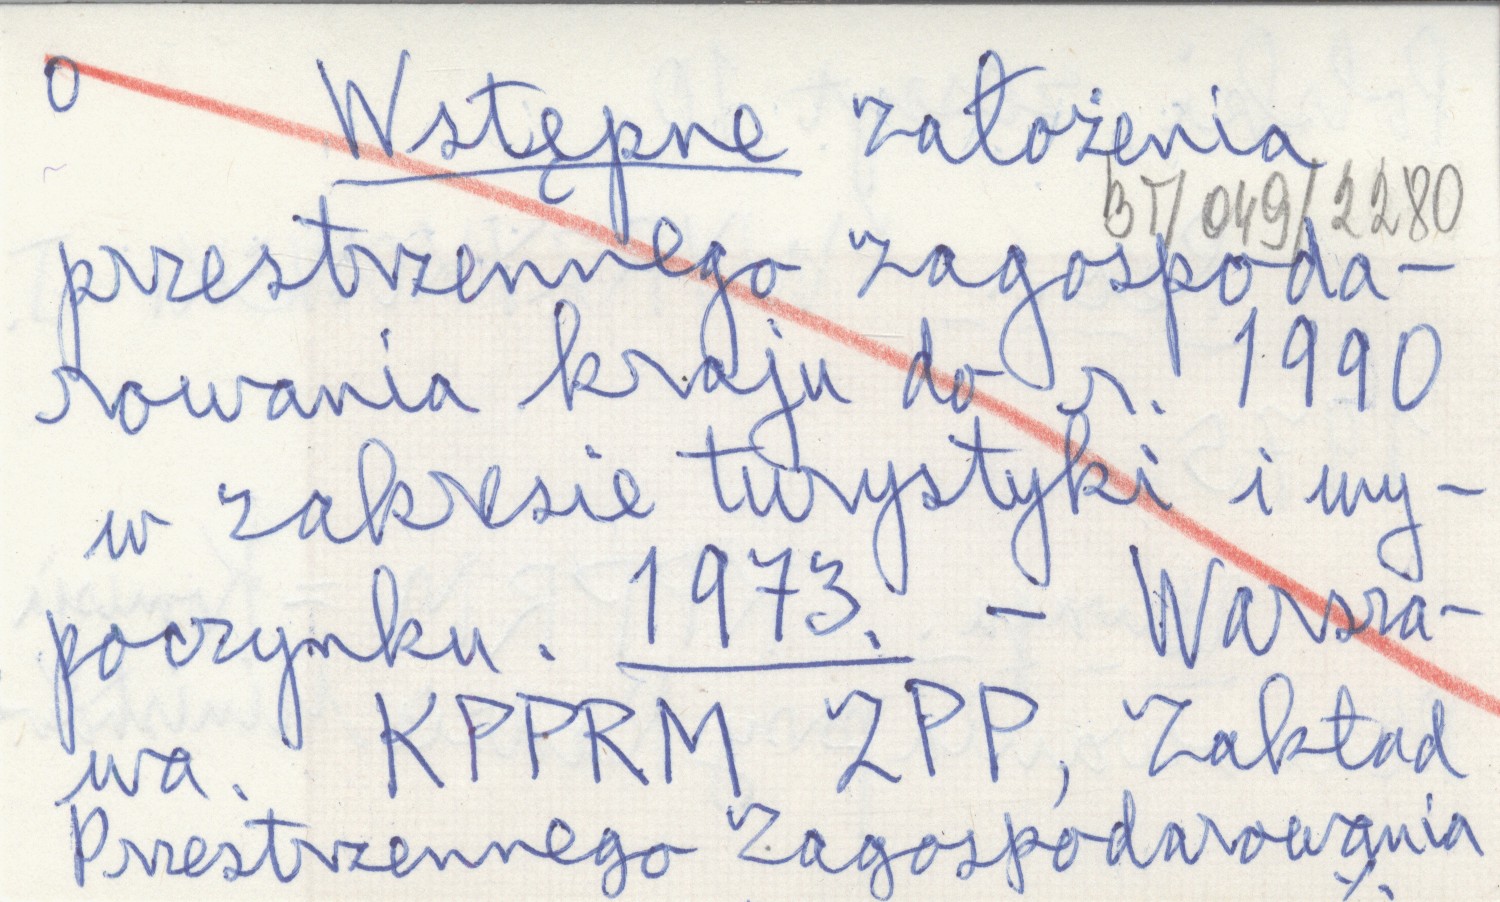 O Wstępne założenia
BT/049/2280
przestrzennego zagospoda-
rowania kraju do r. 1990
w zakresie turystyki i wy-
poczynku. 1973. - Warsza-
wa. KPPRM ZPP, Zakład
Przestrzennego Zagospodarowania